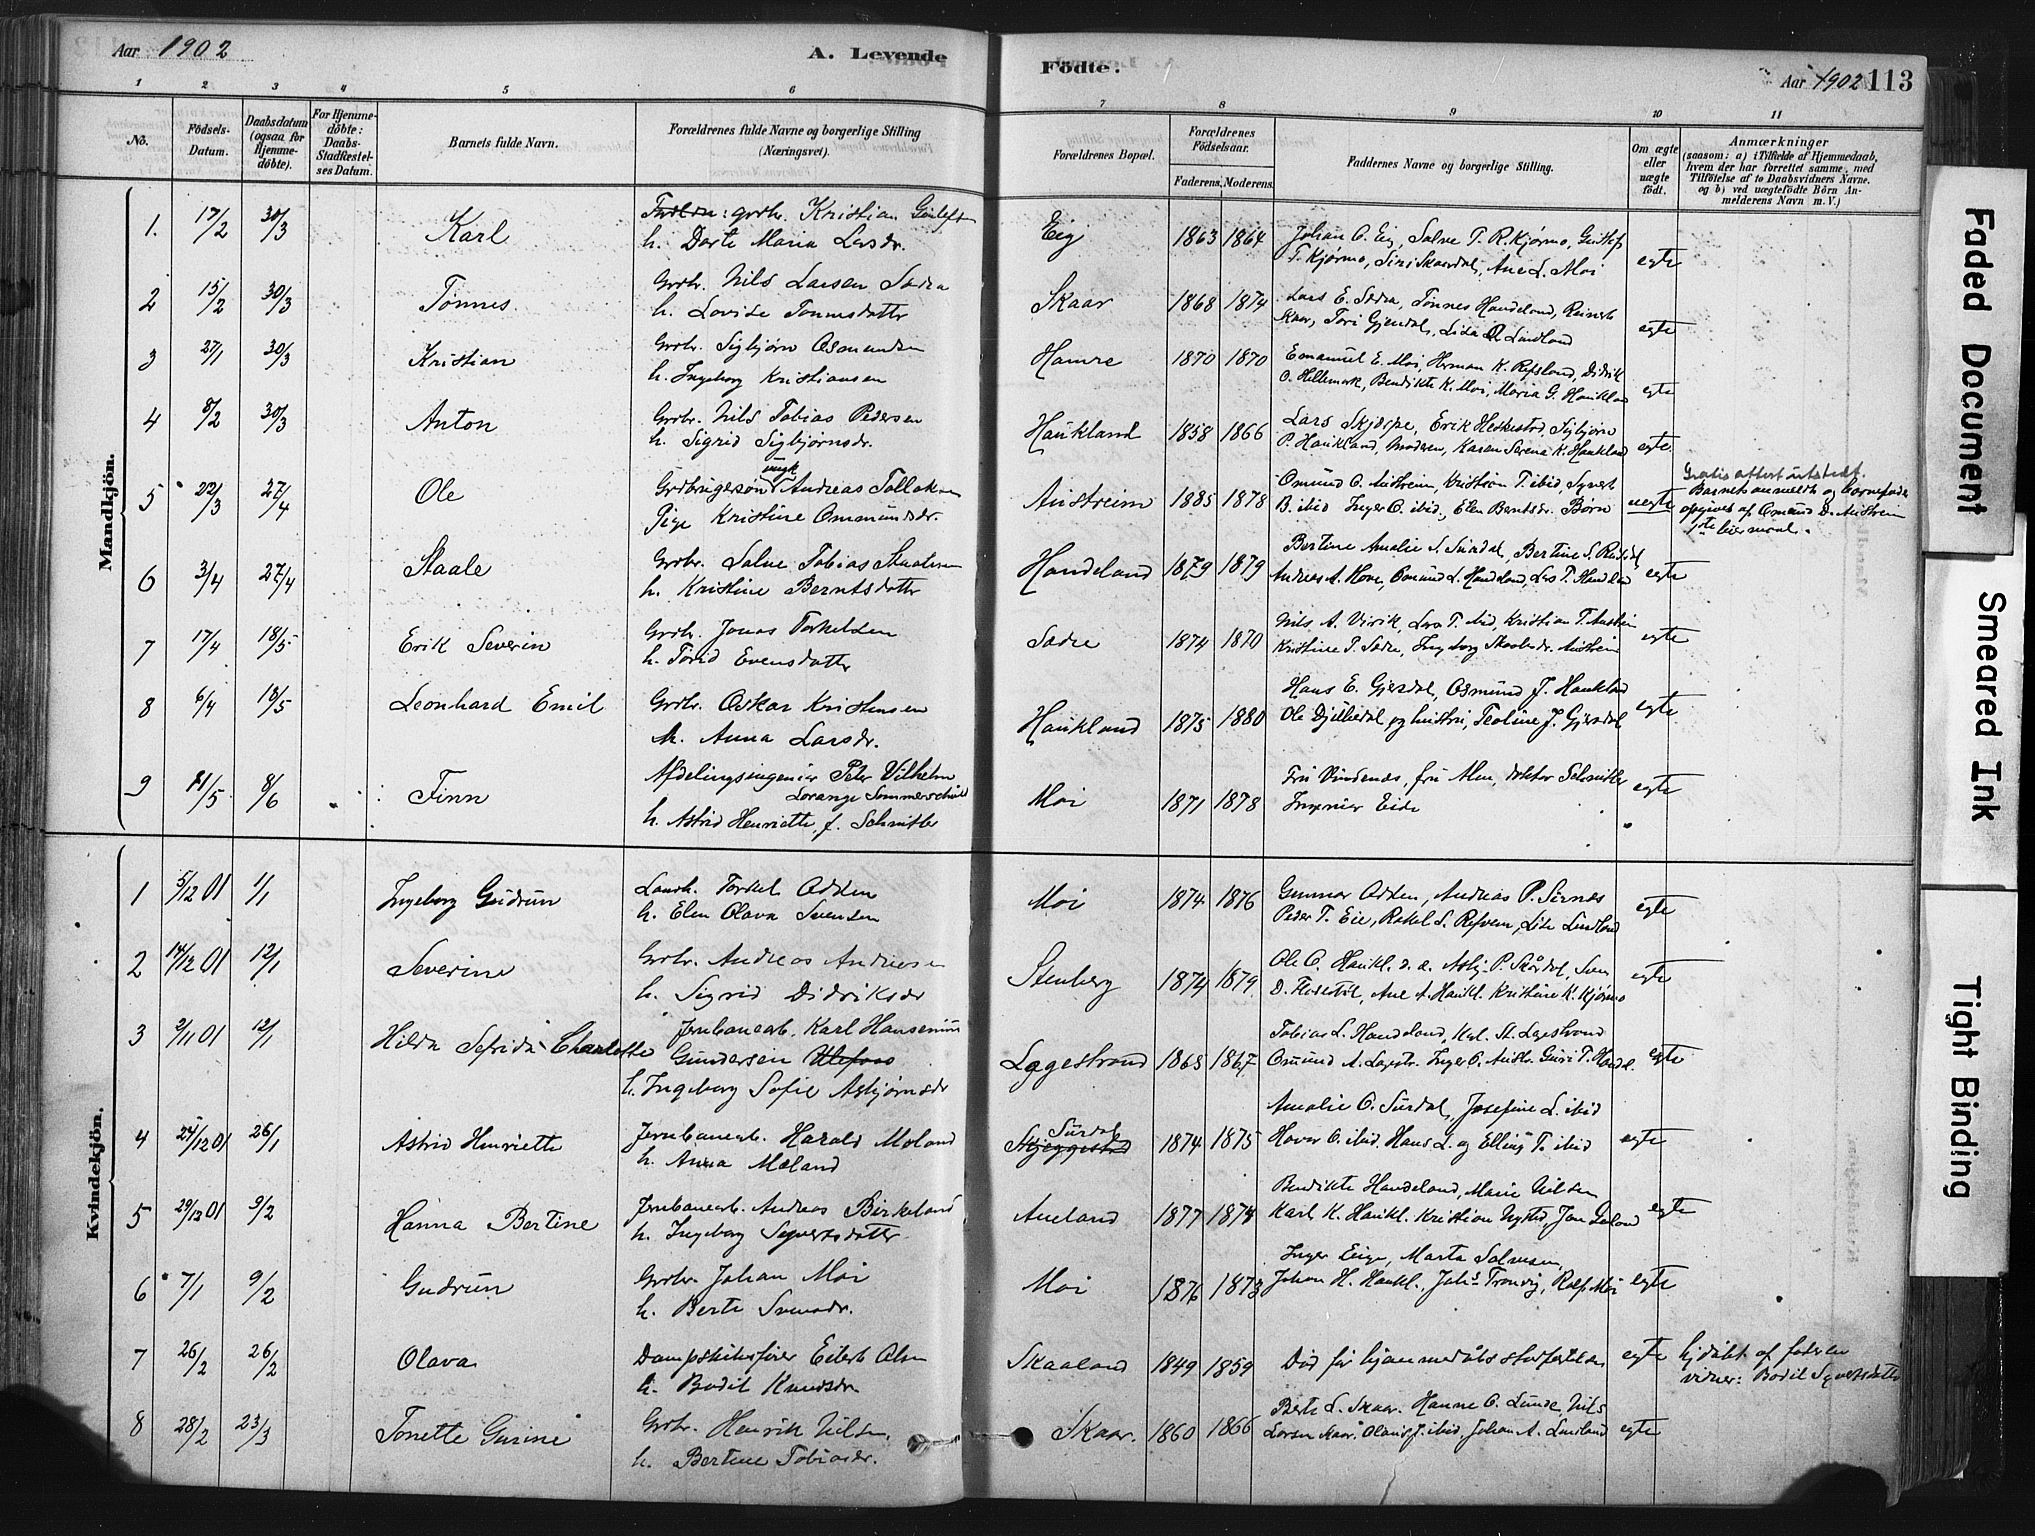 Aar 1902
A. Levende
Födte.
Aar 1902 113
1 2 3 4 5 6 7 8 9 10 11
No.
Födsels-Datum.
Daabsdatum (ogsaa for Hjemme-döbte).
For Hjemme-döbte: Daabs-Stadfæstel-ses Datum.
Barnets fulde Navn.
Forældrenes fulde Navne og borgerlige Stilling (Næringsvei).
Forældrenes Bopæl.
Forældrenes Födselsaar.
Faderens. Moderens.
Faddernes Navne og borgerlige Stilling.
Om ægte eller uægte födt.
Anmærkninger
(saasom: a) i Tilfælde af Hjemmedaab,
hvem der har forrettet samme, med
Tilföielse af to Daabsvidners Navne,
og b) ved uægtefödte Börn An-
melderens Navn m. V.)
Mandkjön.
1. 17/2 30/3 Karl
grbr. Kristian
h. Dorte Maria Larsdr.
Eig 1863 1864
Johan O. Eig, Salve T. R. Kjørmo,
T. Kjørmo, Siri Skaardal, Ane L. Moi
egte
2 15/2 30/3 Tønnes
Grbr. Nils Larsen Sædre
h. Lovise Tønnesdatter
Skaar 1868 1874
Lars E. Sædre, Tønnes Handeland, Reinert
Skaar, Tori Gjendal, Lisa Lindland
egte
3 27/1 30/3 Kristian
Grbr. Sigbjørn Osmundsen
h. Ingeborg Kristiansen
Hamre 1870 1870
Emanuel E. Moi, Herman K. Refsland, Didrik
O. Hellemork, Bendikte K. Moi, Maria G. Haukland
egte
4 8/2 30/3 Anton
Grbr. Nils Tobias Pedersen
h. Sigrid Sigbjørnsdr.
Haukland 1858 1866
Lars Skjærpe, Erik Heskestad, Sigbjørn
P. Haukland, Karen Serena K. Haukland
egte
5 22/3 27/4 Ole
ungk
Grdbrugersøn Andreas Tollaksen
Pige Kristine Ommundsdr.
Austreim 1885 1878
Omund O. Austreim, Kristian T. ibid, Syvert
B. ibid Inger O. ibid, Elen Berntsdr. Børn
uegte
Gratis attest utstedt.
Barnet anmeldt og barnefader
opgivet af Omund O. Austreim
1ste leiermaal.
6 3/4 27/4 Staale
Grbr. Salve Tobias Staalesen
h. Kristine Berntsdatter
Handeland 1879 1879
Bertine Amalie S. Surdal, Bertine S.
Andreas A. Hove, Omund L. Handeland, Lars T.
egte
7 17/4 18/5 Erik Severin
Grbr. Jonas Torkelsen
h. Torid Evensdatter
Sædre 1874 1870
Nils A. Virik, Lars T. ibid, Kristian T.
Kristine T. Sædre, Ingeborg
egte
8 6/4 18/5 Leonhard Emil
Grbr. Oskar Kristensen
h. Anna Larsdr.
Haukland 1875 1880
Hans E. Gjersdal, Osmund J. Haukland
Ole og hustru, Teoline J. Gjersdal
egte
9 11/5 8/6 Finn
Afdelingsingeniør Peter Vilhelm
Lorange Sommerschild
h. Astrid Henriette, f. Schmitler
Moi 1871 1878
Fru Vindenæs, fru Alm, doktor Schmitler
Ingeniør Eide
egte
Kvindekjön.
1 5/12 01 1/1 Ingeborg Gudrun
Landh. Torkel Odden
h. Elen Olava Svensen
Moi 1874 1876
Gunnar Odden, Andreas P. Sirnes
Peder T. Eie, Rakel S. Refvem, Lise Lindland
egte
2 14/12 01 12/1 Severine
Grbr. Andreas Andresen
h. Sigrid Didriksdr
Stenberg 1874 1879
Ole O. Haukl. Asbj. P. Skårdal, Sven
D. Ane A. Haukl. Kristine K. Kjørmo
egte
3 2/11 01 12/1 Hilda Sefrida Charlotte
Jernbanearb. Karl Hansenius
Gundersen Ulefoss
h. Ingeborg Sofie Asbjørnsdr
Logestrand 1865 1867
Tobias L. Handeland, Karl St. Legestrand
Omund A. Legestr. Inger O. Austr. Guri T. Handel.
egte
4 24/12 01 26/1 Astrid Henriette
Jernbanearb. Harald Moland
h. Anna Moland
Surdal
Skjeggestad 1874 1875
Amalie O. Surdal, Josefine L. ibid
Haver O. ibid. Hans L. og Elling T. ibid
egte
5 29/12 01 9/2 Hanna Bertine
Jernbanearb. Andreas Birkeland
h. Ingeborg Syvertsdatter
Aueland 1877 1874
Bendikte Handeland, Marie Nilsen
Karl K. Haukl. Kristian Nysted, Jan
egte
6 7/1 9/2 Gudrun
Grbr. Johan Moi
h. Berte Svensdr.
Moi 1876 1873
Inger Eige, Marta Salvesen,
Johan H. Haukl., Johs Tronvig, Rolf Moi
egte
7 26/2 26/2 Olava
Dampskibsfører Eilert Olsen
h. Bodil Knudsdr
Skaaland 1849 1859
Død før hjemmedåbs stadfæstelse
egte
hj.døbt af faderen
vidner: Bodil Syvertsdatter
8 28/2 23/3 Tonette Gurine
Grbr. Henrik Nilsen
h. Bertine Tobiasdr.
Skaar. 1860 1866
Berte L. Skaar. Hanne O. Lunde, Nils
Larsen Skaar. Olaus J. ibid, Johan A. Lindland
egte
Faded Document
Smeared Ink
Tight Binding